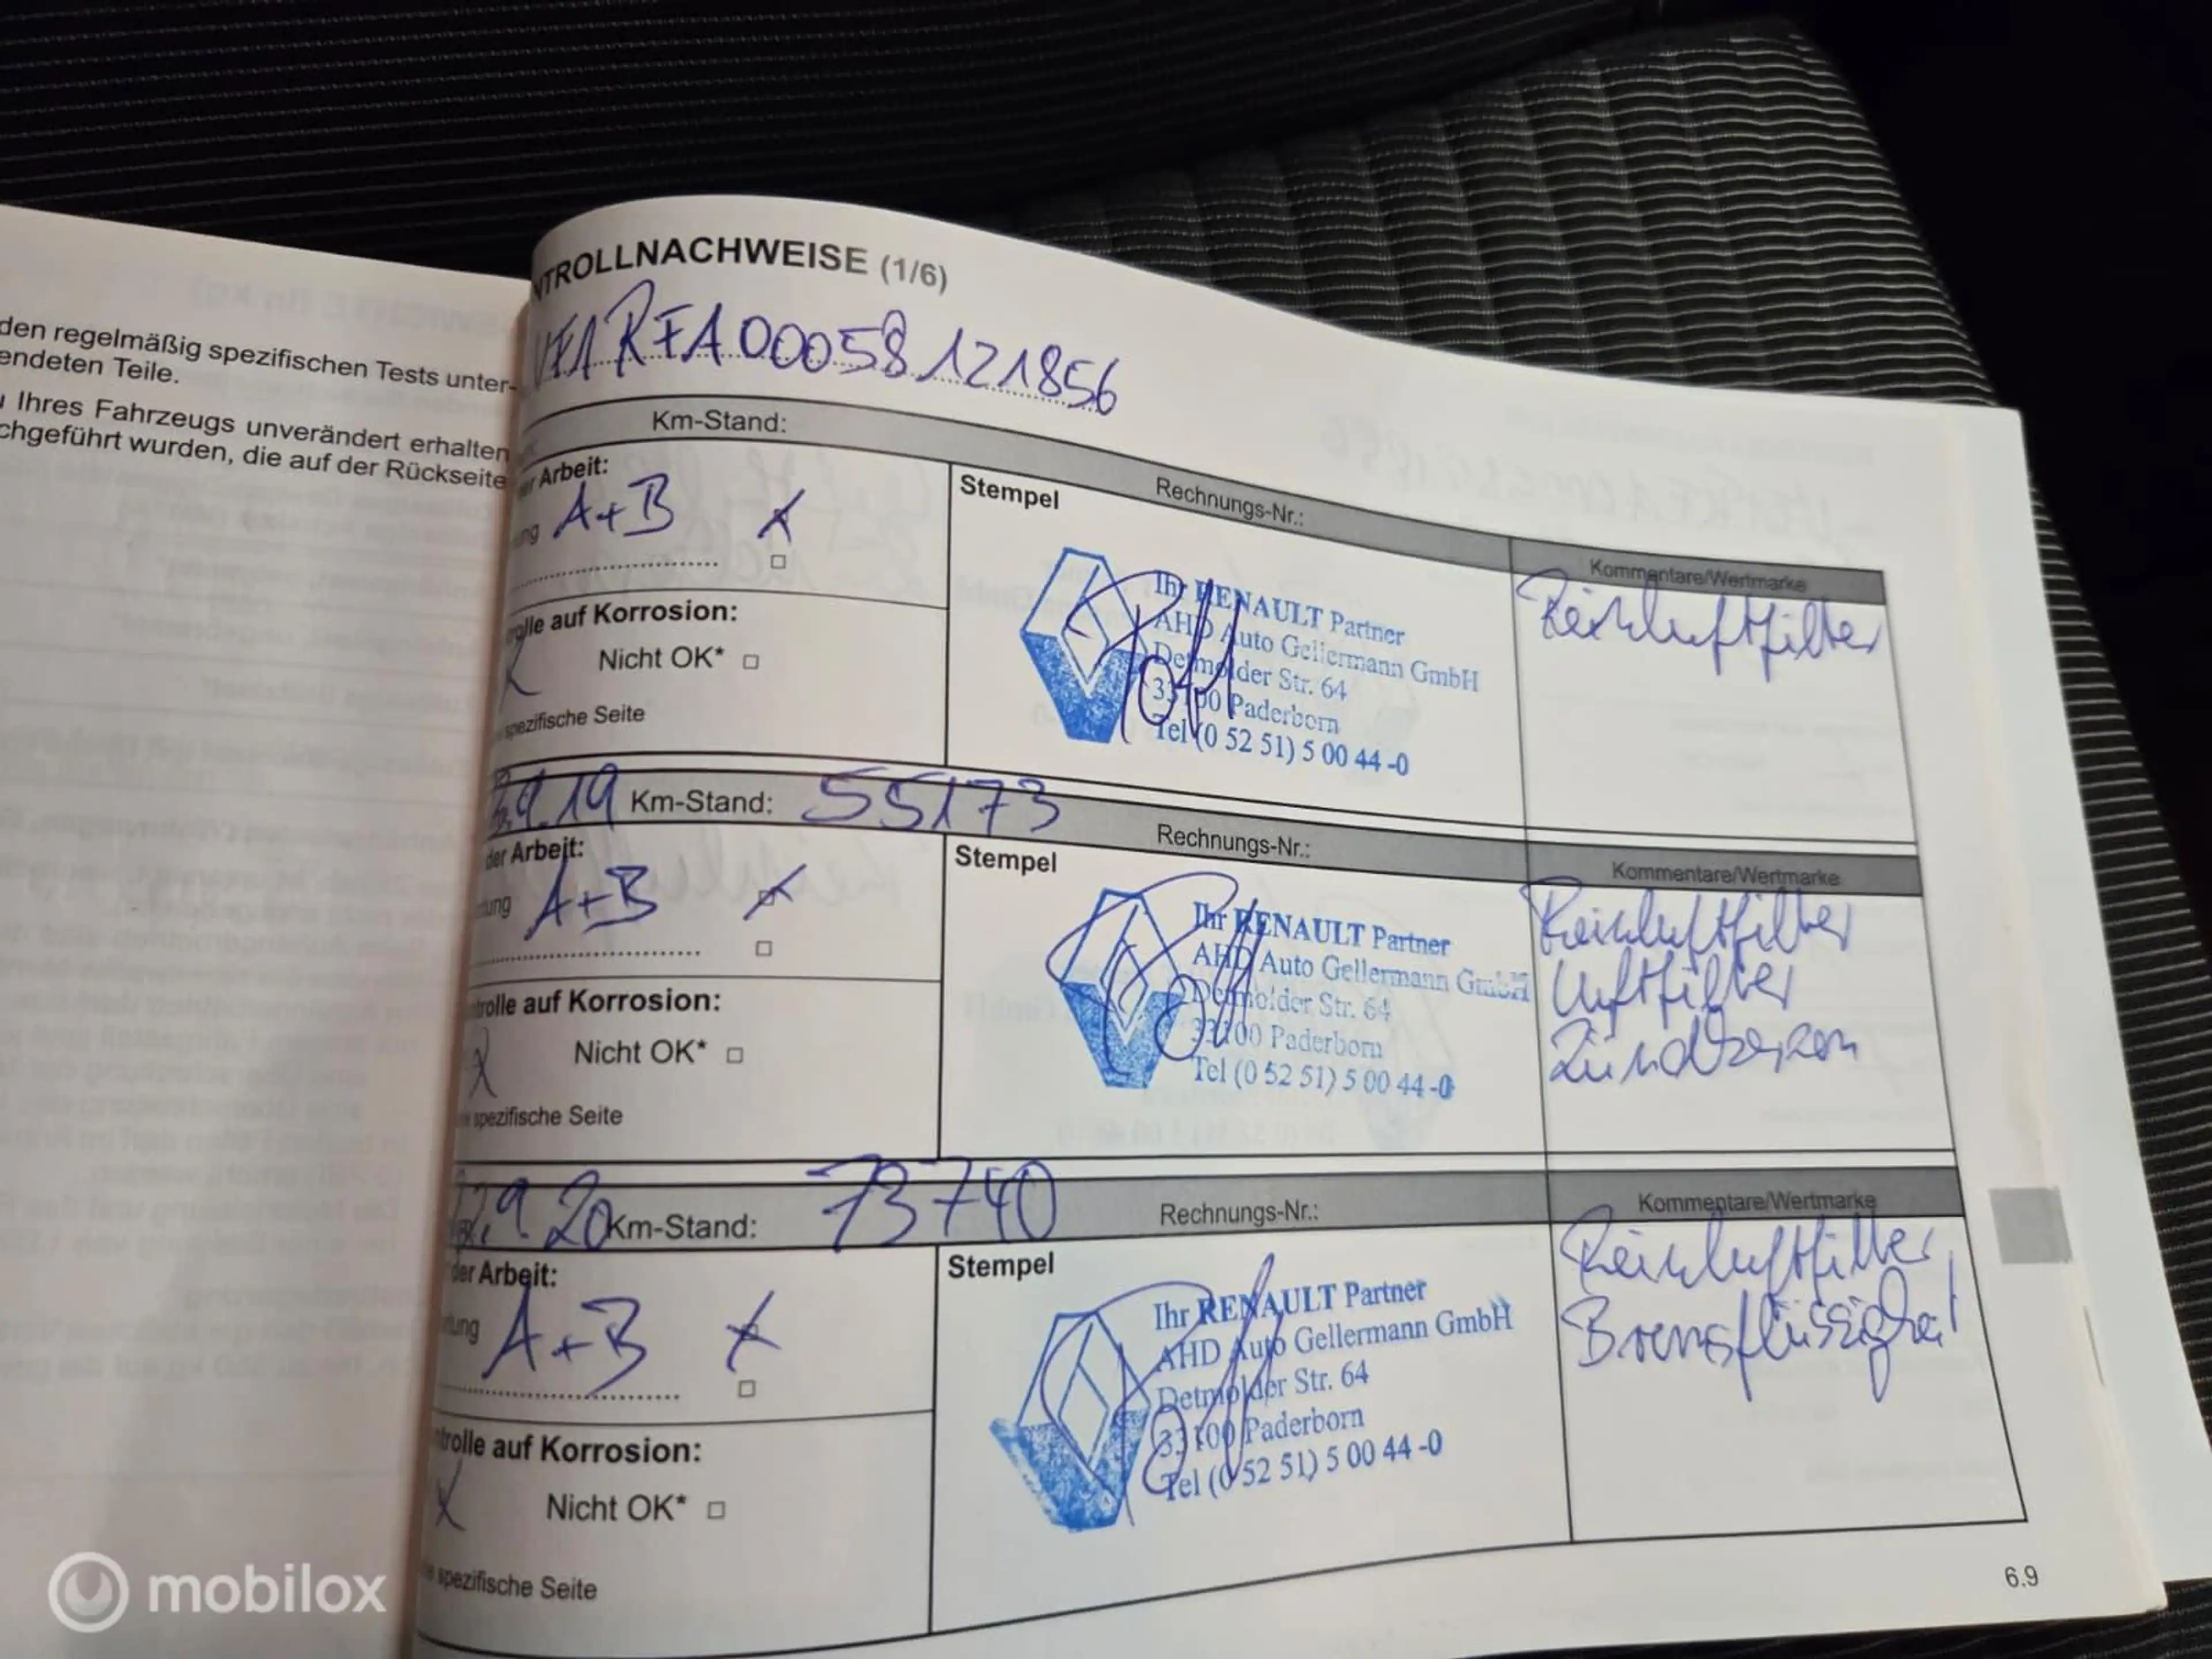 den regelmäßig spezifischen Tests unter-
endeten Teile.
Ihres Fahrzeugs unverändert erhalten
chgeführt wurden, die auf der Rückseite
NTROLLNACHWEISE (1/6)
VF1RFA00058121856
Km-Stand:
er Arbeit:
Stempel
Rechnungs-Nr.:
Kommentare/Wertmarke
ung A+B X
Reinluftfilter
Ihr RENAULT Partner
AHD Auto Gellermann GmbH
Detmolder Str. 64
33100 Paderborn
Tel (0 52 51) 5 00 44 -0
olle auf Korrosion:
Nicht OK*
spezifische Seite
9.19 Km-Stand: 55173
der Arbeit:
Stempel
Rechnungs-Nr.:
Kommentare/Wertmarke
tung A+B X
Reinluftfilter
Luftfilter
Zündkerzen
Ihr RENAULT Partner
AHD Auto Gellermann GmbH
Detmolder Str. 64
33100 Paderborn
Tel (0 52 51) 5 00 44 -0
trolle auf Korrosion:
X Nicht OK*
spezifische Seite
9.20 Km-Stand: 73740
der Arbeit:
Stempel
Rechnungs-Nr.:
Kommentare/Wertmarke
tung A+B X
Reinluftfilter
Bremsflüssigkeit
Ihr RENAULT Partner
AHD Auto Gellermann GmbH
Detmolder Str. 64
33100 Paderborn
Tel (0 52 51) 5 00 44 -0
ntrolle auf Korrosion:
X Nicht OK*
spezifische Seite
6.9
mobilox